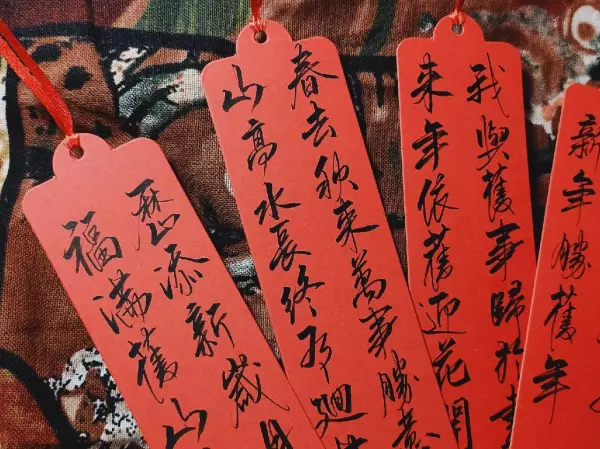 歷添新歲月
福滿舊山
春去秋來萬事勝意
山高水長終有迴
我與舊事歸於
來年依舊迎花開
新年勝舊年